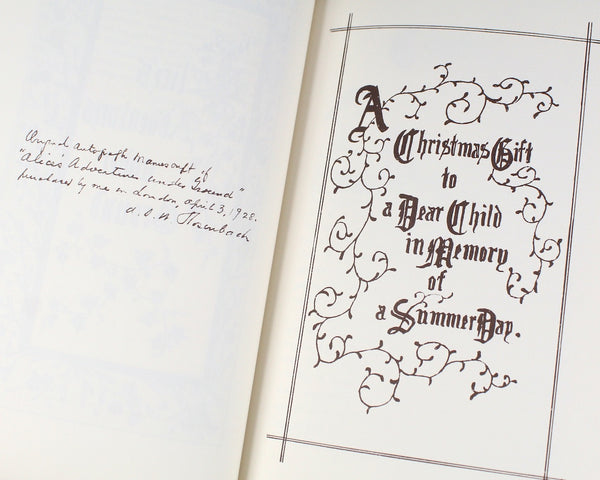 Original autograph manuscript of
"Alice's Adventures under Ground"
purchased by me in London, april 3, 1928.
A. S. W. Rosenbach
A
Christmas Gift
to
a Dear Child
in Memory
of
a Summer Day.